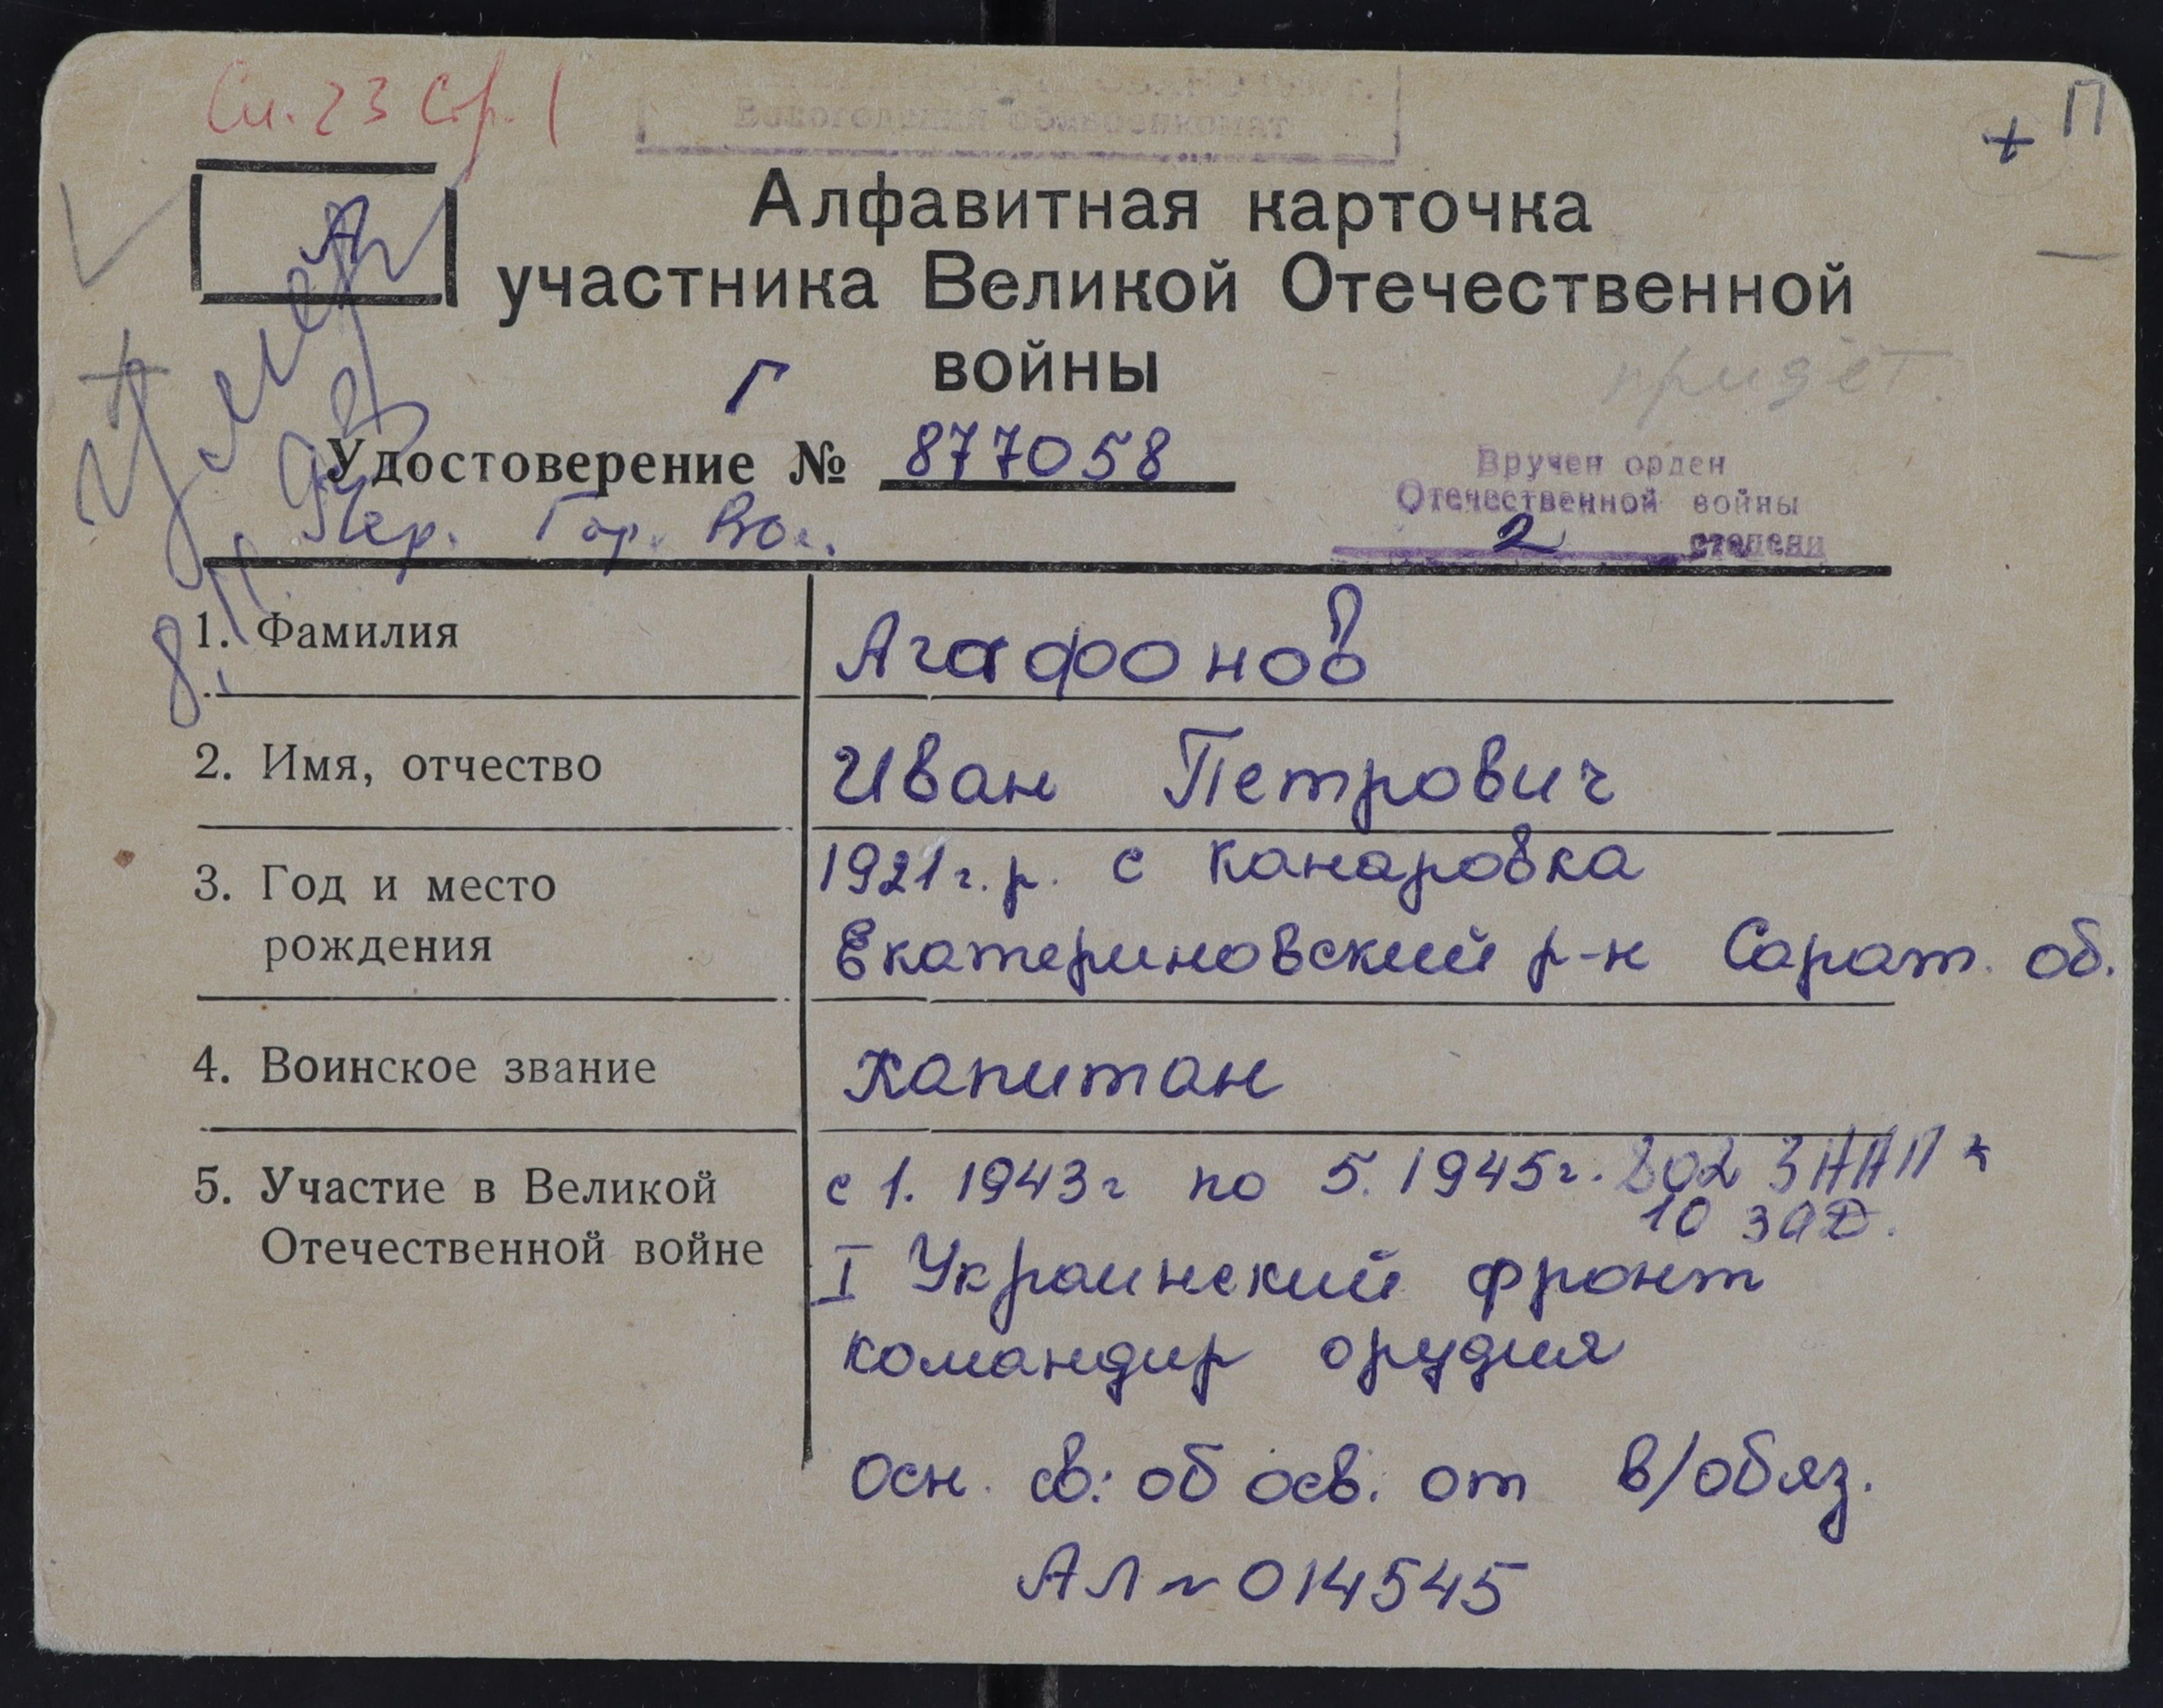 Сп. 23 Стр. 1
Вологодский облвоенкомат
+ П
А
Алфавитная карточка
участника Великой Отечественной
войны
Умер
придёт.
Г
Удостоверение № 877058
Вручен орден
Отечественной войны
2 степени
Пер. Гор. Во..
1. Фамилия Агафонов
2. Имя, отчество Иван Петрович
3. Год и место 1921 г.р. с Канаровка
рождения Екатериновский р-н Сарат. об.
4. Воинское звание капитан
5. Участие в Великой с 1. 1943г по 5. 1945г. 802 ЗААП
10 зад.
Отечественной войне I Украинский фронт
командир орудия
Осн. св: об осв: от в/обяз.
АЛ № 014545